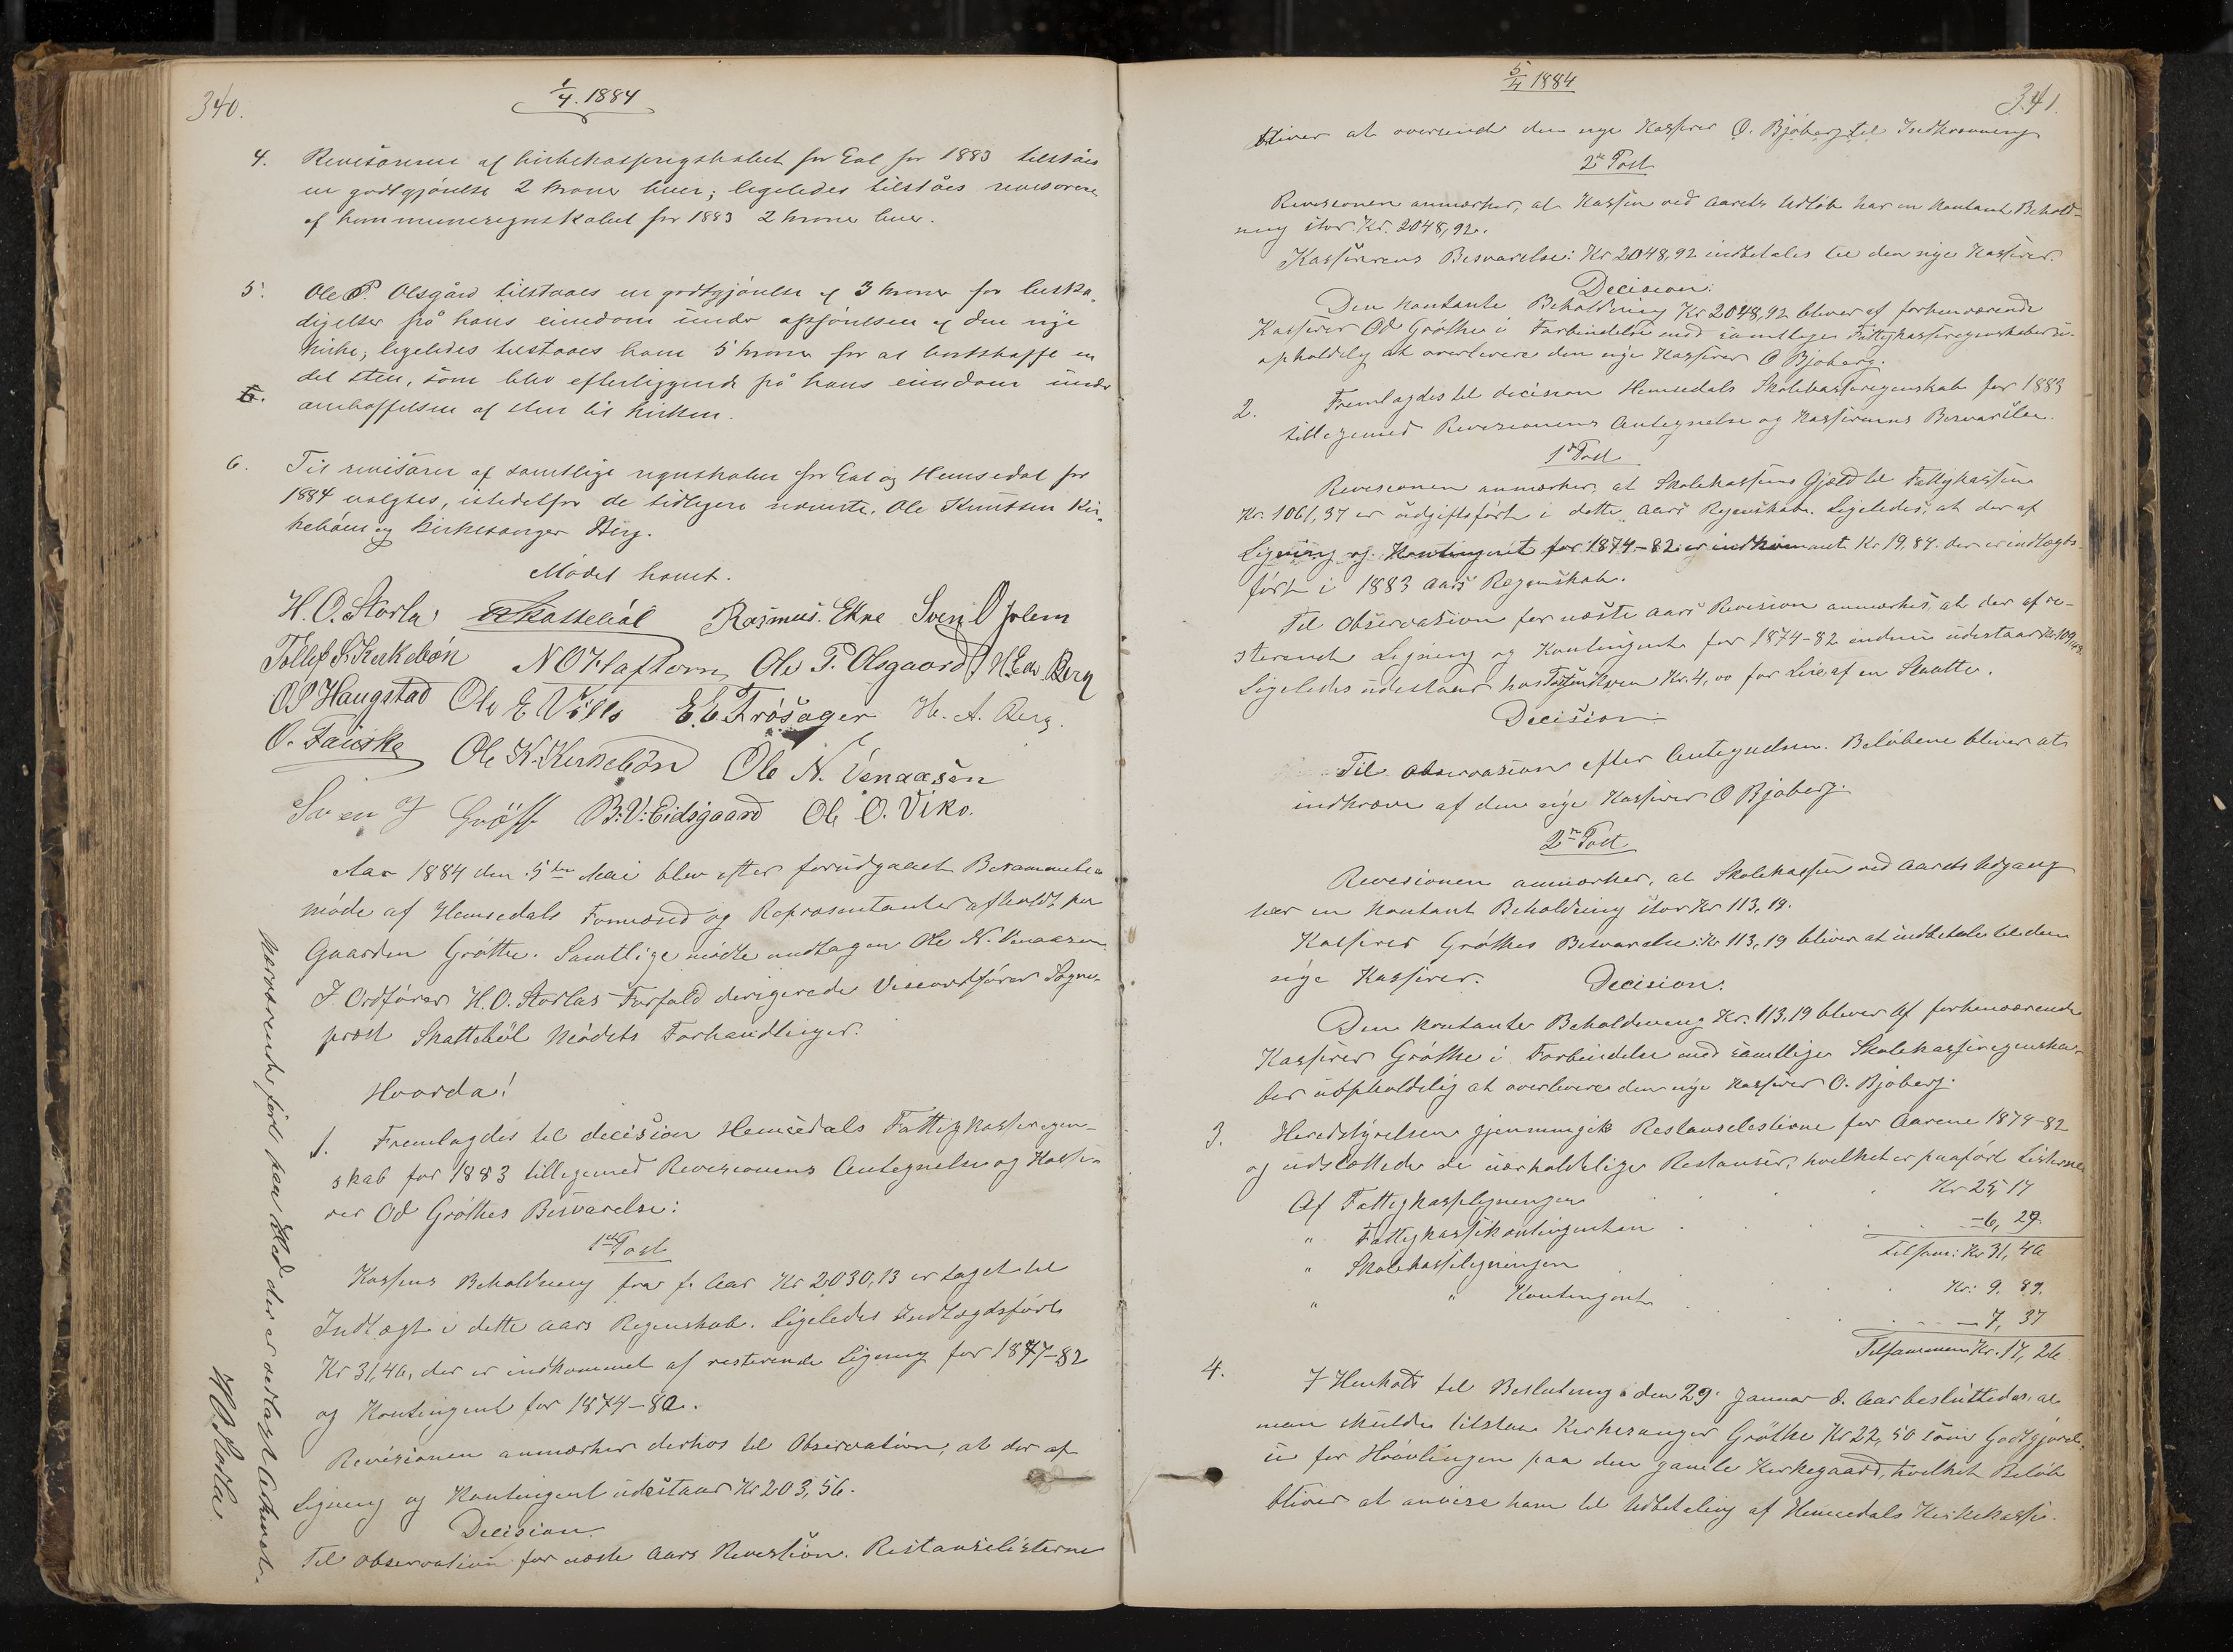 340.
1/4. 1884
4. Revisorerne af kirkekasseregnskabet for Gol for 1883 tilståes
en godtgjörelse 2 kroner hver; ligeledes tilståes revisorerne
af kommuneregnskabet for 1883 2 krone hver.
5. Ole P. Olsgård tilstaaes en godtgjörelse af 3 kroner for beska-
digelser på hans eiendom under opförelsen af den nye
kirke; ligeledes tilstaaes ham 5 kroner for at bortskaffe en
del sten, som blev efterliggende på hans eiendom under
anskaffelsen af sten til kirken.
6. Til revisorer af samtlige regnskaber for Gol og Hemsedal for
1884 valgtes, istedetfor de tidligere nævnte, Ole Knutsen Kir-
keböen og Kirkesanger Berg.
Mödet hævet.
H. O. Storla Skattebøl Rasmus. Ekne Sven O Jolem
Tollef S. Kirkebön N O Haftorn Ole P. Olsgaard H. Edv. Berg
O S Haugstad Ole E Villo E. E. Frösager H. A. Berg.
O. Fauske Ole K. Kirkebön Ole N. Venaasen
Sven Gröthe B. V. Eidsgaard Ole O. Viko.
Aar 1884 den 5te Mai blev efter forudgaaet Berammelse
möde af Hemsedals Formænd og Repræsentanter afholdt paa
Gaarden Gröthe. Samtlige mödte undtagen Ole N. Venaasen
I Ordförer H. O. Storlas Forfald dirigerede Viceordförer Sogne-
præst Skattebøl Mödets Forhandlinger.
Hvorda!
1. Fremlagdes til decision Hemsedals Fattigkasseregn-
skab for 1883 tilligemed Revisionens Antegnelser og Kasse-
rer Od Gröthes Besvarelse:
1ste Post
Kassens Beholdning fra f. Aar Kr 2030,13 er taget til
Indtægt i dette Aars Regnskab. Ligeledes Indtægtsført
Kr 31,46, der er indkommet af resterende Ligning for 1877-82
og Kontingent for 1874-82.
Revisionen anmærker derhos til Observation, at der af
Ligning og Kontingent udestaar Kr 203,56.
Decision
Til observation for næste Aars Revision. Restanselisterne
Nærværende förte paa Sted der er vedtaget
H O Storla
5/4 1884
341.
bliver at oversende den nye Kasserer O. Bjöberg til Indkrævning
2den Post
Revisionen anmærker, at Kassen ved Aarets Udlöb har en kontant Behold-
ning stor Kr. 2048,92.
Kassererens Besvarelse: Kr 2048,92 indbetales til den nye Kasserer.
Decision:
Den kontante Beholdning Kr 2048,92 bliver af forhenværende
Kasserer Od Gröthe i Forbindelse med samtlige Fattigkasseregnskaber u-
opholdelig at overlevere den nye Kasserer O Bjöberg.
2. Fremlagdes til decision Hemsedals Skolekasseregnskab for 1883
tilligemed Revisionens Antegnelse og Kassererens Besvarelse.
1ste Post
Revisionen anmærker, at Skolekassens Gjæld til Fattigkassen
Kr. 1061,37 er udgiftsført i dette Aars Regnskab. Ligeledes, at der af
Ligning og Kontingent for 1874-82 er indkommet Kr 19,84. der er indtægts-
ført i 1883 Aars Regnskab.
Til Observasion for næste Aars Revision anmærkes, at der af re-
sterende Ligning og Kontingent for 1874-82 endnu udestaar Kr 109,43.
Ligeledes udestaar hos Kr. 4,00 for Leie af en Staatte.
Decision:
Til observasion efter Antegnelsen. Beløbene bliver at
indkræve af den nye Kasserer O Bjöberg.
2den Post
Revisionen anmærker, at Skolekassen ved Aarets Udgang
har en kontant Beholdning stor Kr 113,19.
Kasserer Gröthes Besvarelse: Kr 113,19 bliver at indbetale til den
nye Kasserer. Decision:
Den kontante Beholdning Kr. 113,19 bliver af forhenværende
Kasserer Gröthe i Forbindelse med samtlige Skolekasseregnska-
ber uopholdelig at overlevere den nye Kasserer O. Bjöberg.
3. Heredstyrelsen gjennemgik Restanselisterne for Aarene 1874-82
og udslettede de uerholdelige Restanser, hvilket er paaført Listerne
Af Fattigkasseligningen Kr 25,17
" Fattigkassekontingenten - 6,29
Tilsam: Kr 31,46
" Skolekasseligningen Kr: 9.89.
" " Kontingent - 7,37
Tilsammen Kr. 17,26
4. I Henhold til Beslutning den 29. Januar d. Aar besluttedes, at
man skulde tilstaa Kirkesanger Gröthe Kr 22,50 som Godtgjörel-
se for Hævlingen paa den gamle Kirkegaard, hvilket Belöb
bliver at anvise ham til Udbetaling af Hemsedals Kirkekasse.